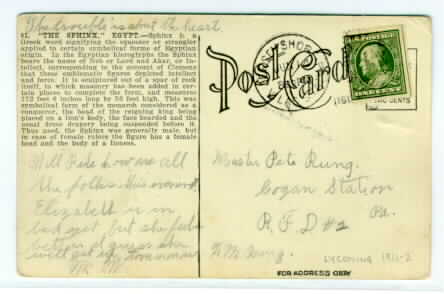 The trouble is about the heart.
81. "THE SPHINX," EGYPT.—Sphinx is a
Greek word signifying the squeezer or strangler
applied to certain symbolical forms of Egyptian
origin. In the Egyptian hieroglyphs the Sphynx
bears the name of Neb or Lord and Akar, or In-
tellect, corresponding in the account of Clemens
that these emblematic figures depicted intellect
and force. It is sculptured out of a spur of rock
itself, to which masonry has been added in cer-
tain places to complete the form, and measures
172 feet 6 inches long by 56 feet high. This was
symbolical form of the monarch considered as
a conqueror, the head of the reigning king being
placed on a lion's body, the face bearded and the
usual dress drapery being suspended before it.
Thus used, the Sphinx was generally male, but
in case of female rulers the figure has a female
head and the body of a lioness.
Well Pete how are all
the folks. This
Elizabeth is in
bed yet, but she feels
better. I guess she
will get up tomorrow
Post Card
JERSEY SHORE
U.S. POSTAGE
CENTS
Master Pete Rung.
Cogan Station
R. F. D. #2
Pa.
LYCOMING 1911-2
FOR ADDRESS ONLY